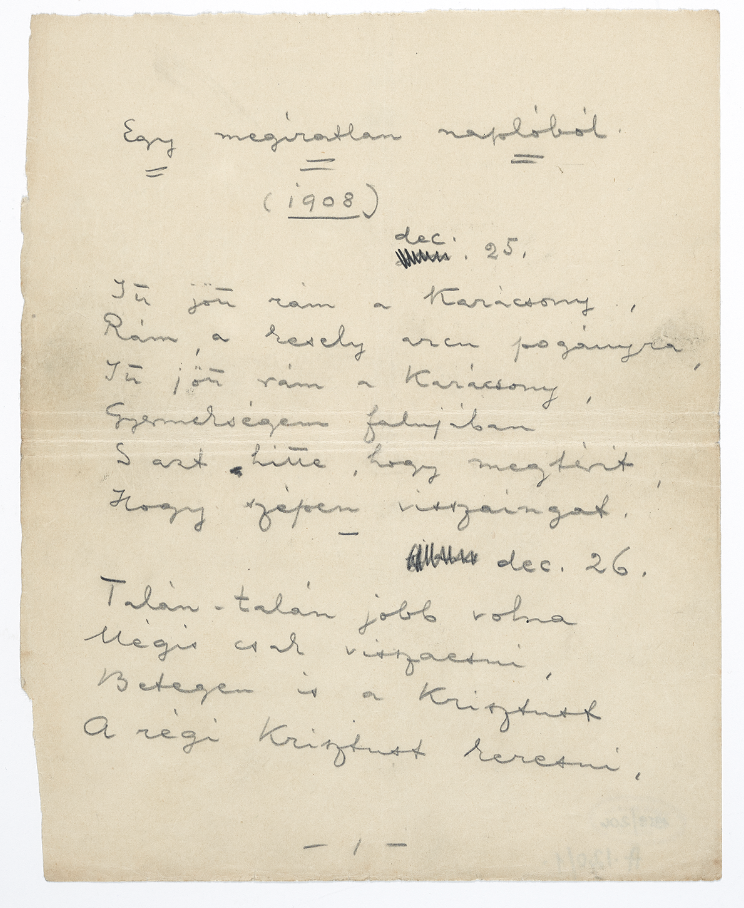 Egy megiratlan naplóból.
(1908)
dec. 25.
Itt jött rám a Karácsony,
Rám, a kesely arcu pogányra,
Itt jött rám a Karácsony,
Gyermekségem falujában
S azt hitte, hogy megtérit,
Hogy szépen visszaingat.
dec. 26.
Talán-talán jobb volna
Mégis csak visszaesni,
Betegen is a Krisztust
A régi Krisztust keresni,
- 1 -